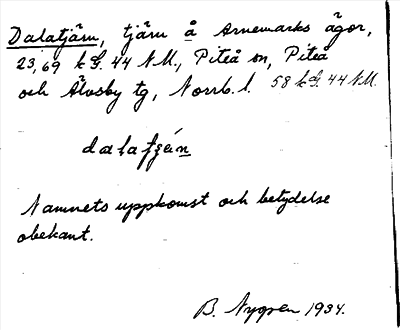 Dalatjärn, tjärn å Arnemarks ägor,
23,69 k S. 44 N M., Piteå sn, Piteå
och Älvsby tg, Norrb. l. 58 k S. 44 N M.
dalatjän
Namnets uppkomst och betydelse
obekant.
B. Nygren 1934.